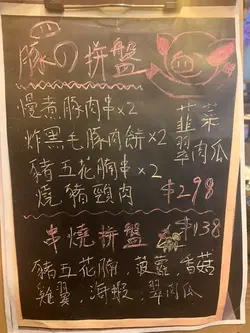 豚の拼盤
慢煮豚肉串×2
炸黑毛豚肉餅×2
豬五花腩串×2
燒豬頸肉
韮菜
翠肉瓜
$298
串燒拼盤
$138
豬五花腩,菠蘿,香菇
雞翼,海蝦,翠肉瓜